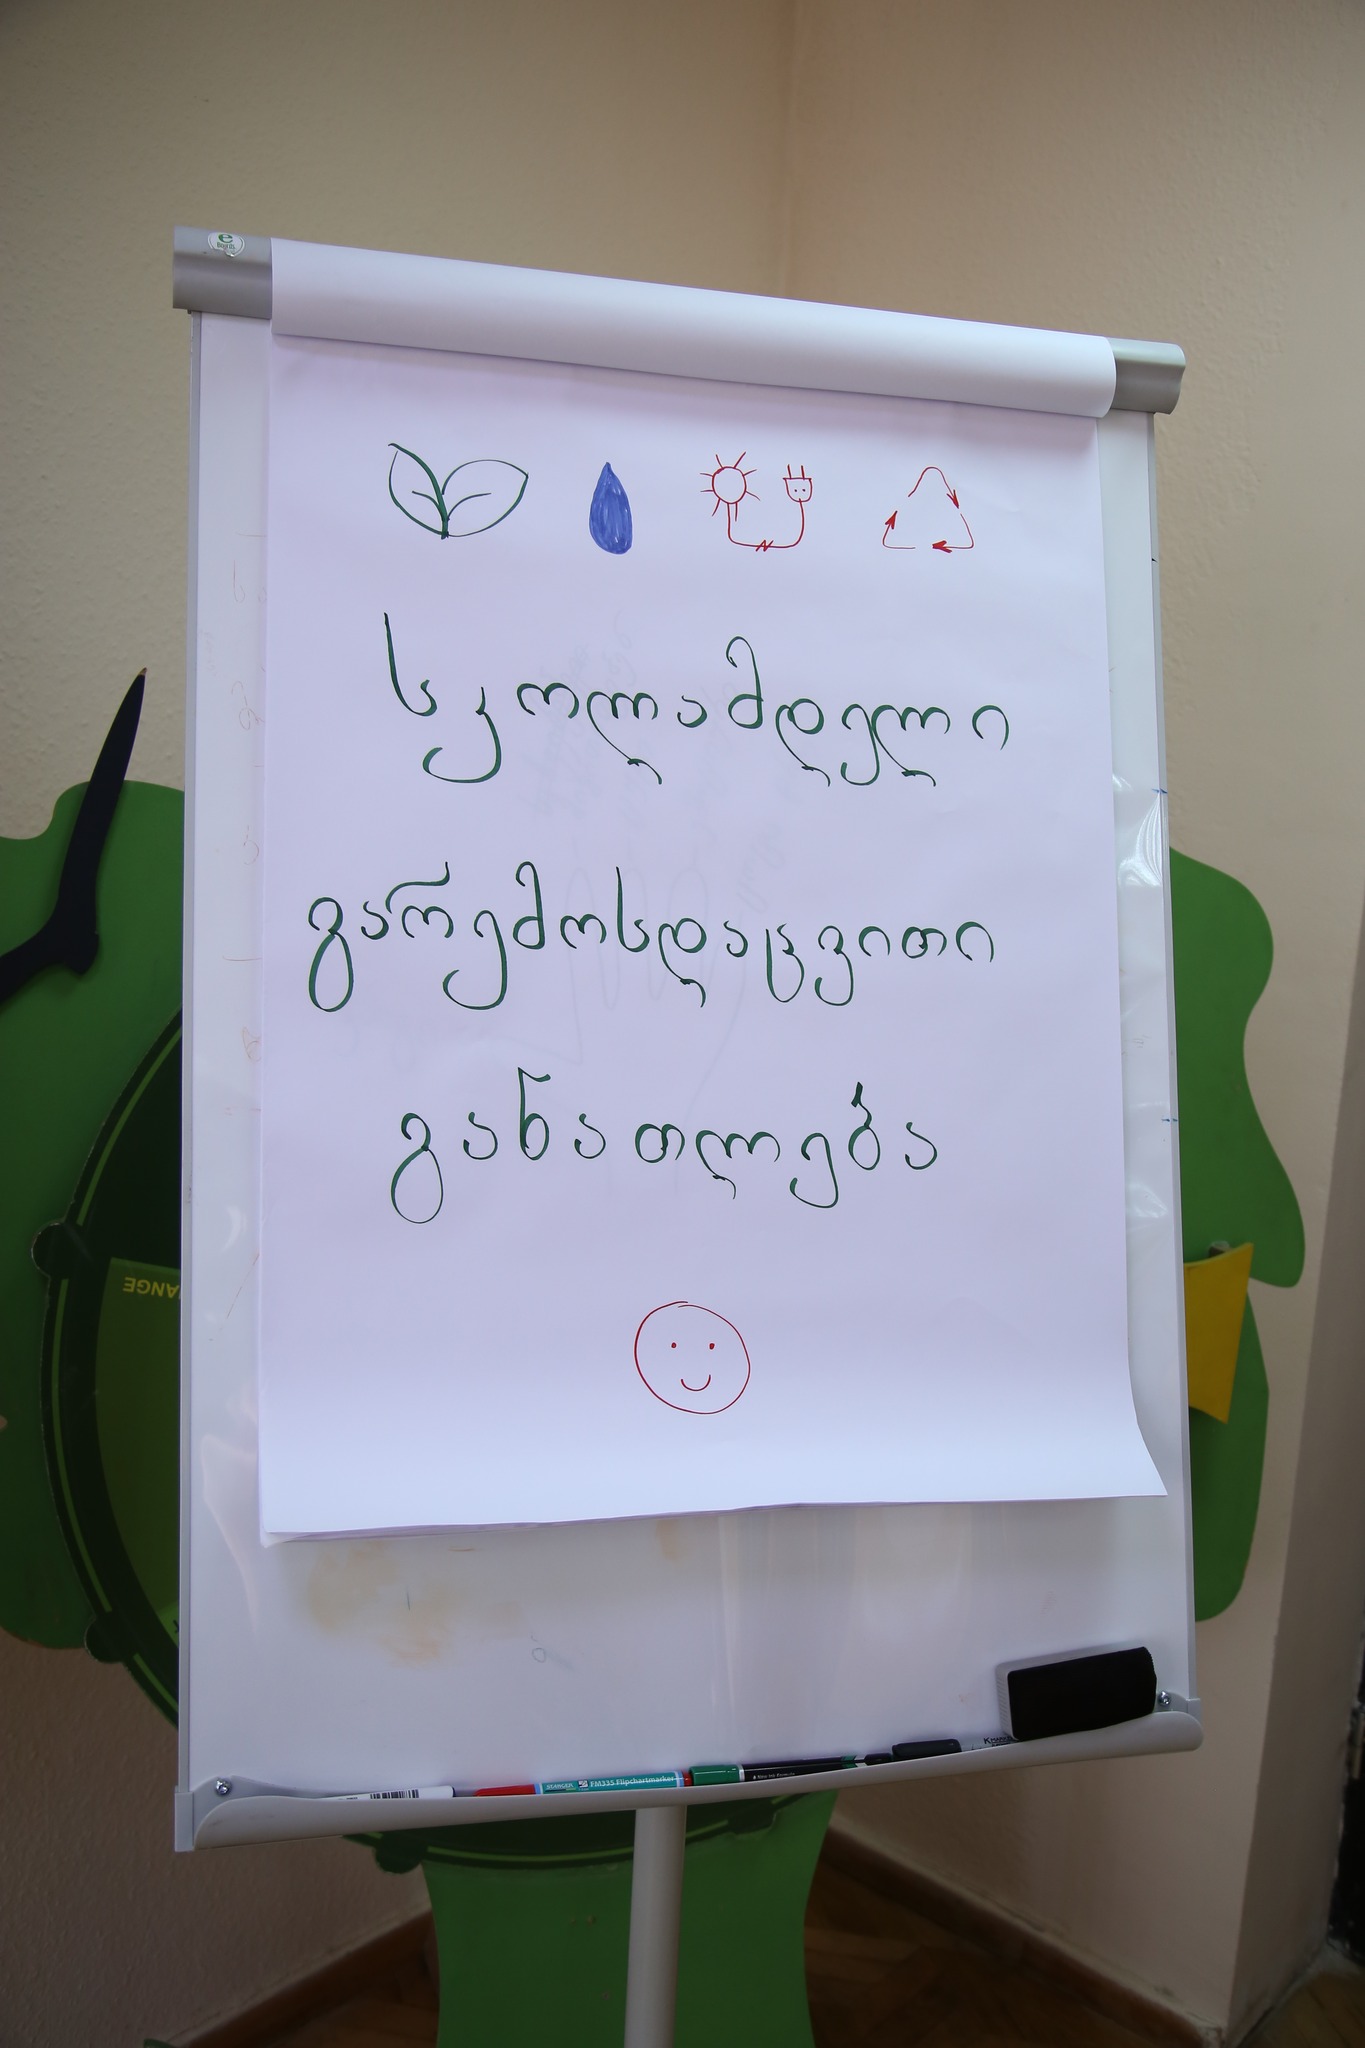 სკოლამდელი
გარემოსდაცვითი
განათლება
FM335 Flipchartmarker